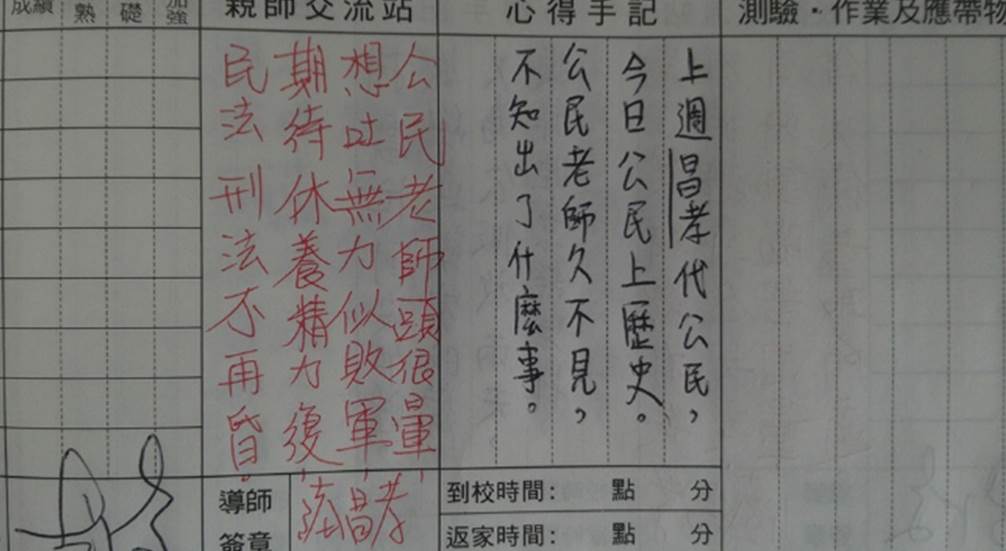 測驗・作業及應帶物
心得手記
上週昌孝代公民，
今日公民上歷史。
公民老師久不見，
不知出了什麼事。
親師交流站
公民老師頭很暈，
想吐無力似敗軍，
期待休養精力復，
民法刑法不再昏。
加強
礎
熟
成績
導師簽章
昌孝
到校時間： 點 分
返家時間： 點 分